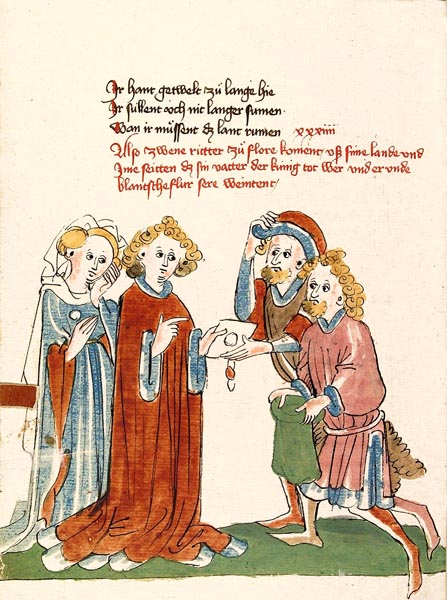 Ir hant getwelt zů lange hie
Ir sullent ooch nit langer sumen
Wan ir müssent dz lant rumen xxxiiii
Also zwene ritter zů flore koment vß sime lande vnd
Ime seiten dz sin vatter der kúnig tot wer vnd er vnde
blantscheflur sere weintent